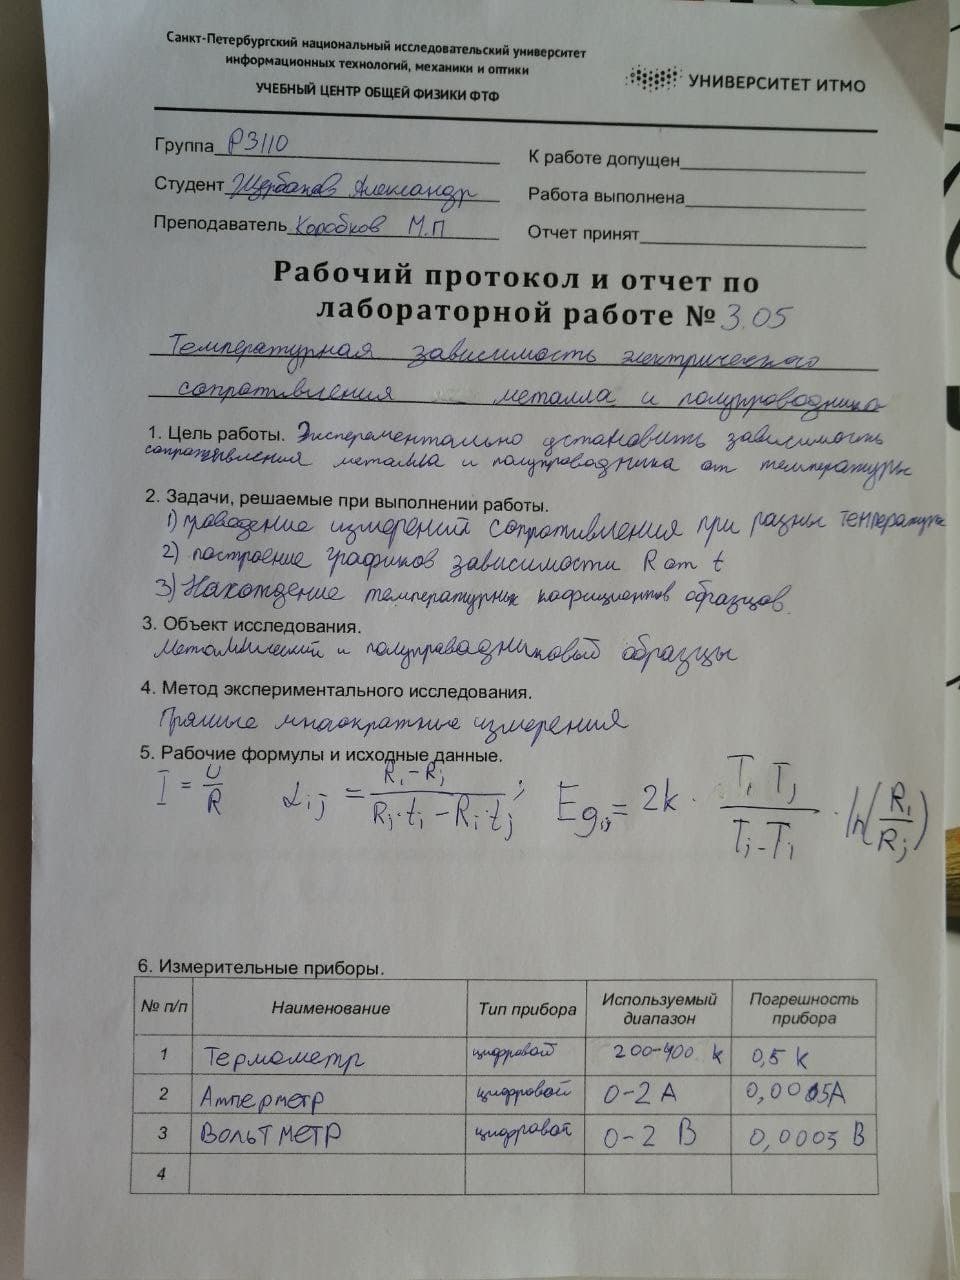 Санкт-Петербургский национальный исследовательский университет
информационных технологий, механики и оптики
УЧЕБНЫЙ ЦЕНТР ОБЩЕЙ ФИЗИКИ ФТФ
УНИВЕРСИТЕТ ИТМО
Группа P3110
К работе допущен
Студент Щербаков Александр
Работа выполнена
Преподаватель Коробков М.П
Отчет принят
Рабочий протокол и отчет по
лабораторной работе № 3.05
Температурная зависимость электрического
сопротивления металла и полупроводника
1. Цель работы. Экспериментально установить зависимость
сопротивления металла и полупроводника от температуры
2. Задачи, решаемые при выполнении работы.
1) проведение измерений сопротивления при разны температурах
2) построение графиков зависимости R от t
3) Нахождение температурных коэфициентов образцов.
3. Объект исследования.
Металлический и полупроводниковый образцы
4. Метод экспериментального исследования.
Прямые многократные измерения
5. Рабочие формулы и исходные данные.
I = U/R αij = (Ri-Rj)/(Rj·ti-Ri·tj); Egij = 2k · (Ti Tj)/(Tj-Ti) · ln(Ri/Rj)
6. Измерительные приборы.
№ п/п Наименование Тип прибора Используемый диапазон Погрешность прибора
1 Термометр цифровой 200-400 K 0,5 K
2 Амперметр цифровой 0-2 А 0,0005А
3 Вольтметр цифровой 0-2 В 0,0003 В
4